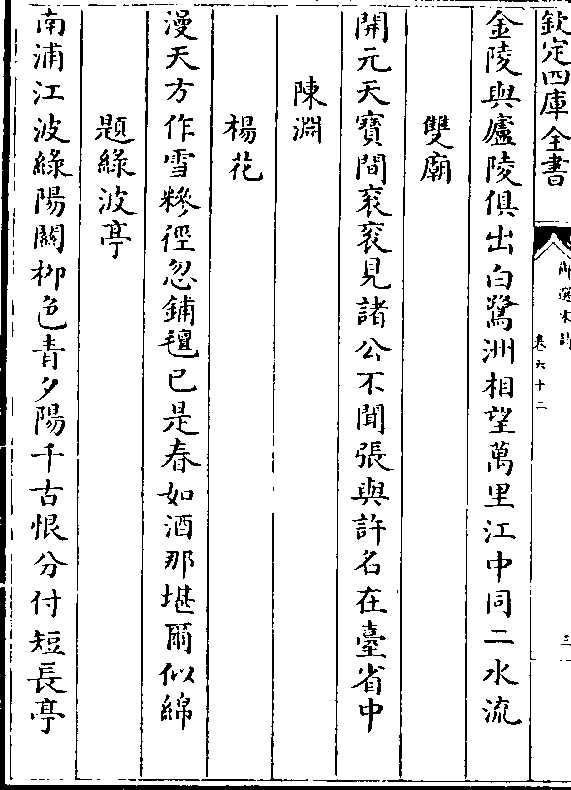 欽定四庫全書
御選宋詩
卷六十二
三
金陵與廬陵俱出白鷺洲相望萬里江中同二水流
雙廟
開元天寶間衮衮見諸公不聞張與許名在臺省中
陳淵
楊花
漫天方作雪糝徑忽鋪氊已是春如酒那堪爾似綿
題綠波亭
南浦江波綠陽關柳色青夕陽千古恨分付短長亭